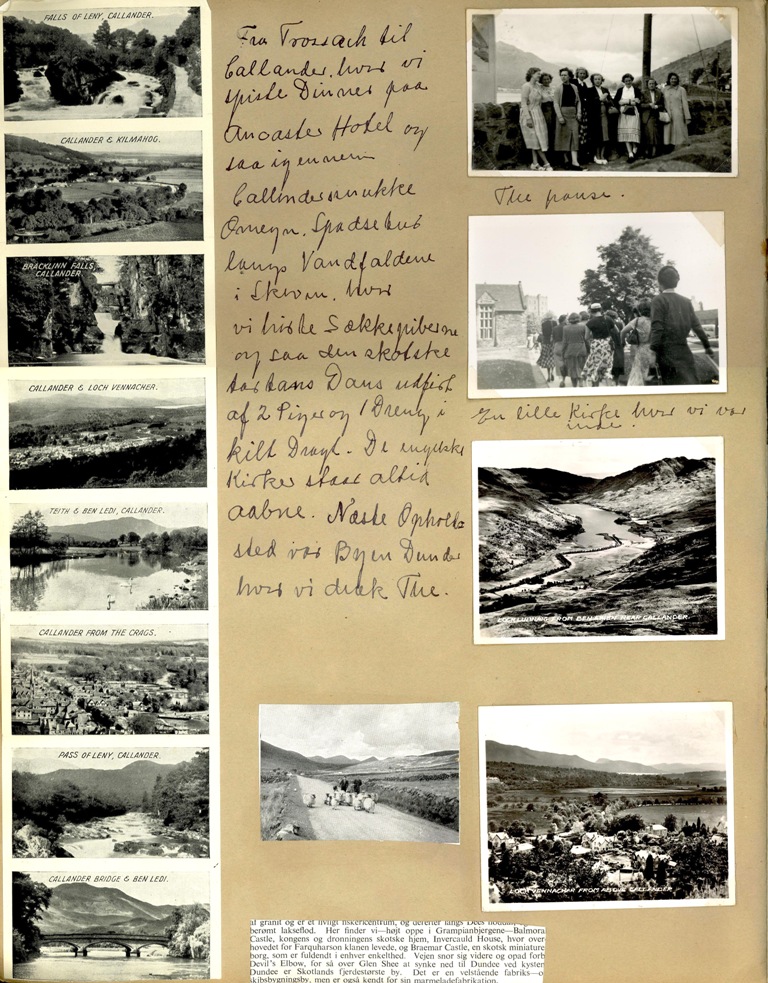 FALLS OF LENY, CALLANDER.
CALLANDER & KILMAHOG.
BRACKLINN FALLS,
CALLANDER
CALLANDER & LOCH VENNACHER.
TEITH & BEN LEDI, CALLANDER.
CALLANDER FROM THE CRAGS.
PASS OF LENY, CALLANDER.
CALLANDER BRIDGE & BEN LEDI.
Fra Trossach til
Callander, hvor vi
spiste Dinner paa
Ancaster Hotel og
saa igennem
Callanders smukke
Omegn. Spadsetur
langs Vandfaldene
i Skoven, hvor
vi hørte Sækkepiberne
og saa den skotske
tartans Dans udført
af 2 Piger og 1 Dreng i
kilt Dragt. De engelske
Kirker staar altid
aabne. Næste Opholds
sted var Byen Dundee
hvor vi drak The.
The pause.
En lille Kirke hvor vi var
inde.
LOCH LUBNAIG FROM BEN NEAR CALLANDER.
LOCH VENNACHAR FROM ABOVE CALLANDER
al granit og er et livligt fiskericentrum, og derefter langs Dees
berømt lakseflod. Her finder vi—højt oppe i Grampianbjergene—Balmora
Castle, kongens og dronningens skotske hjem, Invercauld House, hvor over
hovedet for Farquharson klanen levede, og Braemar Castle, en skotsk miniature
borg, som er fuldendt i enhver enkelthed. Vejen snor sig videre og opad forb
Devil's Elbow, for så over Glen Shee at synke ned til Dundee ved kysten
Dundee er Skotlands fjerdestørste by. Det er en velstående fabriks—o
skibsbygningsby, men er også kendt for sin marmeladefabrikation.